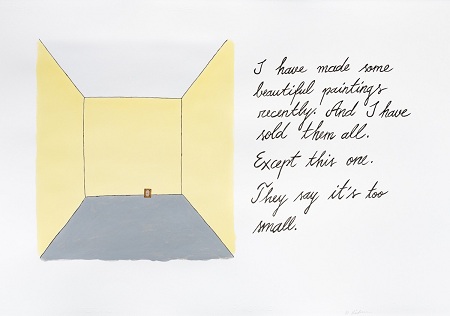 I have made some
beautiful paintings
recently. And I have
sold them all.
Except this one.
They say it's too
small.